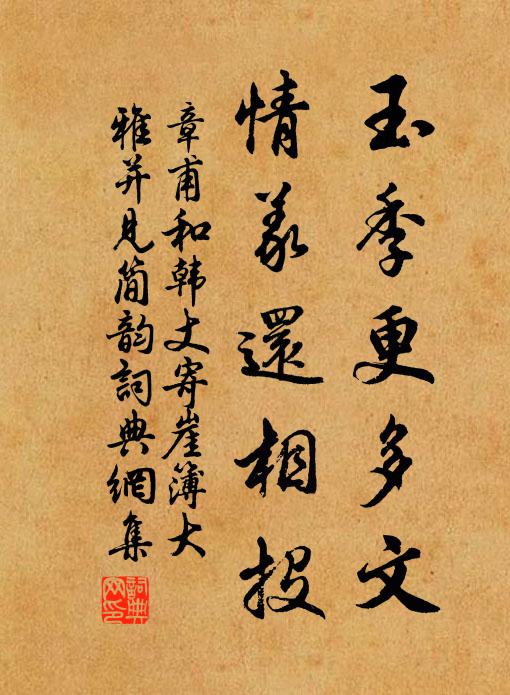 玉季更多文
情義還相投
章甫和韩丈寄崖簿大
雅并見简韵詞典網集
詞典網印